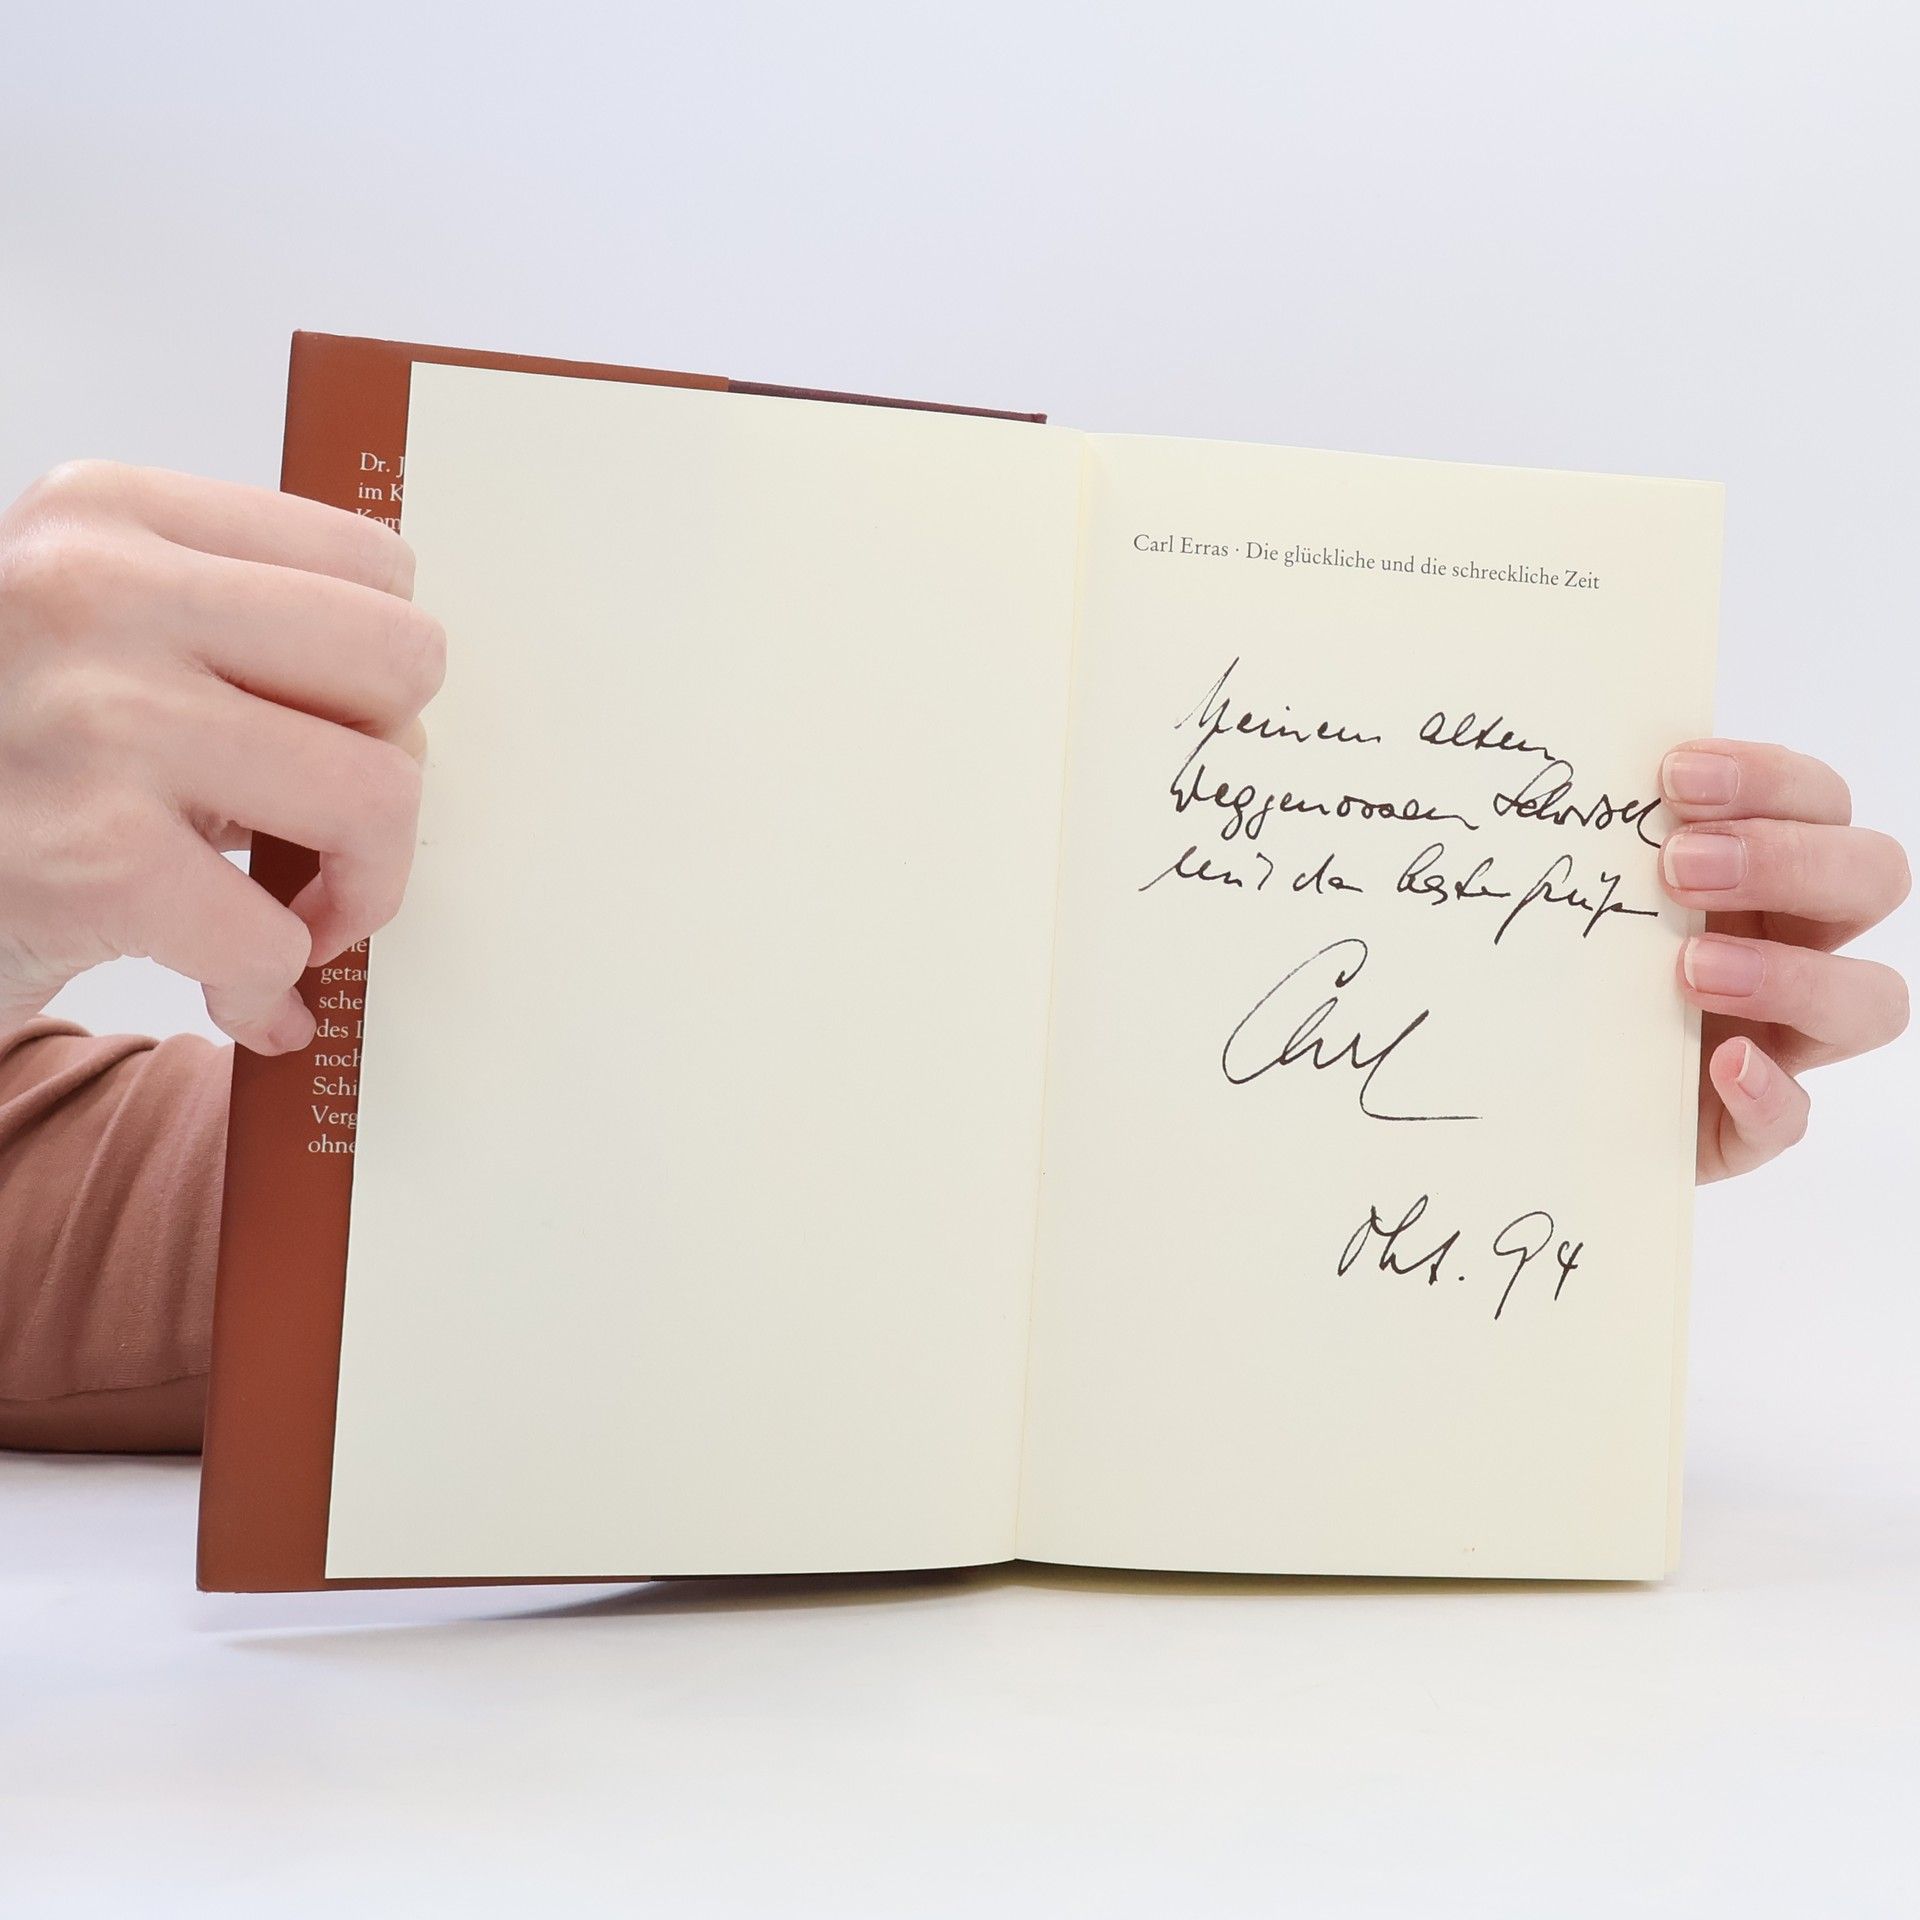 Dr. J
im K
Kom
getau
sche
des
noch
Schi
Verg
ohne
Carl Erras · Die glückliche und die schreckliche Zeit
Meinem alten
Weggenossen Schorsch
mit den besten Grüßen
Carl
Okt. 94